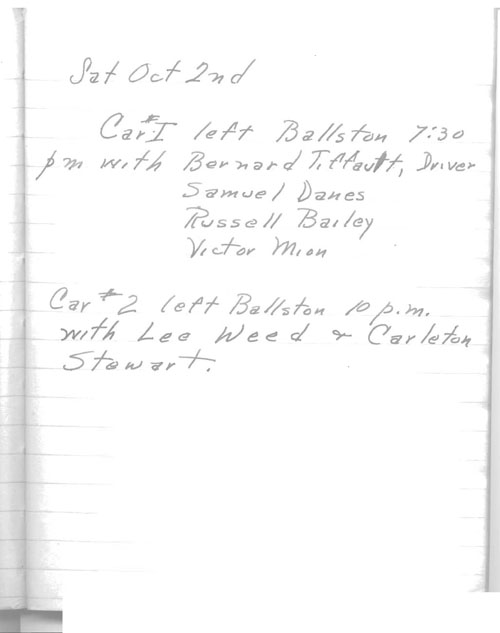 Sat Oct 2nd
Car #I left Ballston 7:30
pm with Bernard Tiffault, Driver
Samuel Danes
Russell Bailey
Victor Mion
Car #2 left Ballston 10 p.m.
with Lee Weed & Carleton
Stewart.